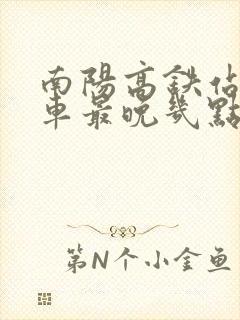 南陽高鉄佔
車最晚幾點
第N个小金鱼